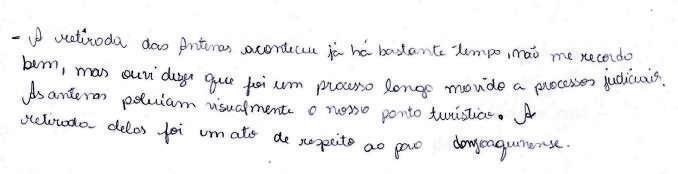 - A retirada das Antenas aconteceu já há bastante tempo, não me recordo
bem, mas ouvi dizer que foi um processo longo movido a processos judiciais.
As antenas poluiam visualmente o nosso ponto turístico. A
retirada delas foi um ato de respeito ao povo domjoaquinense.